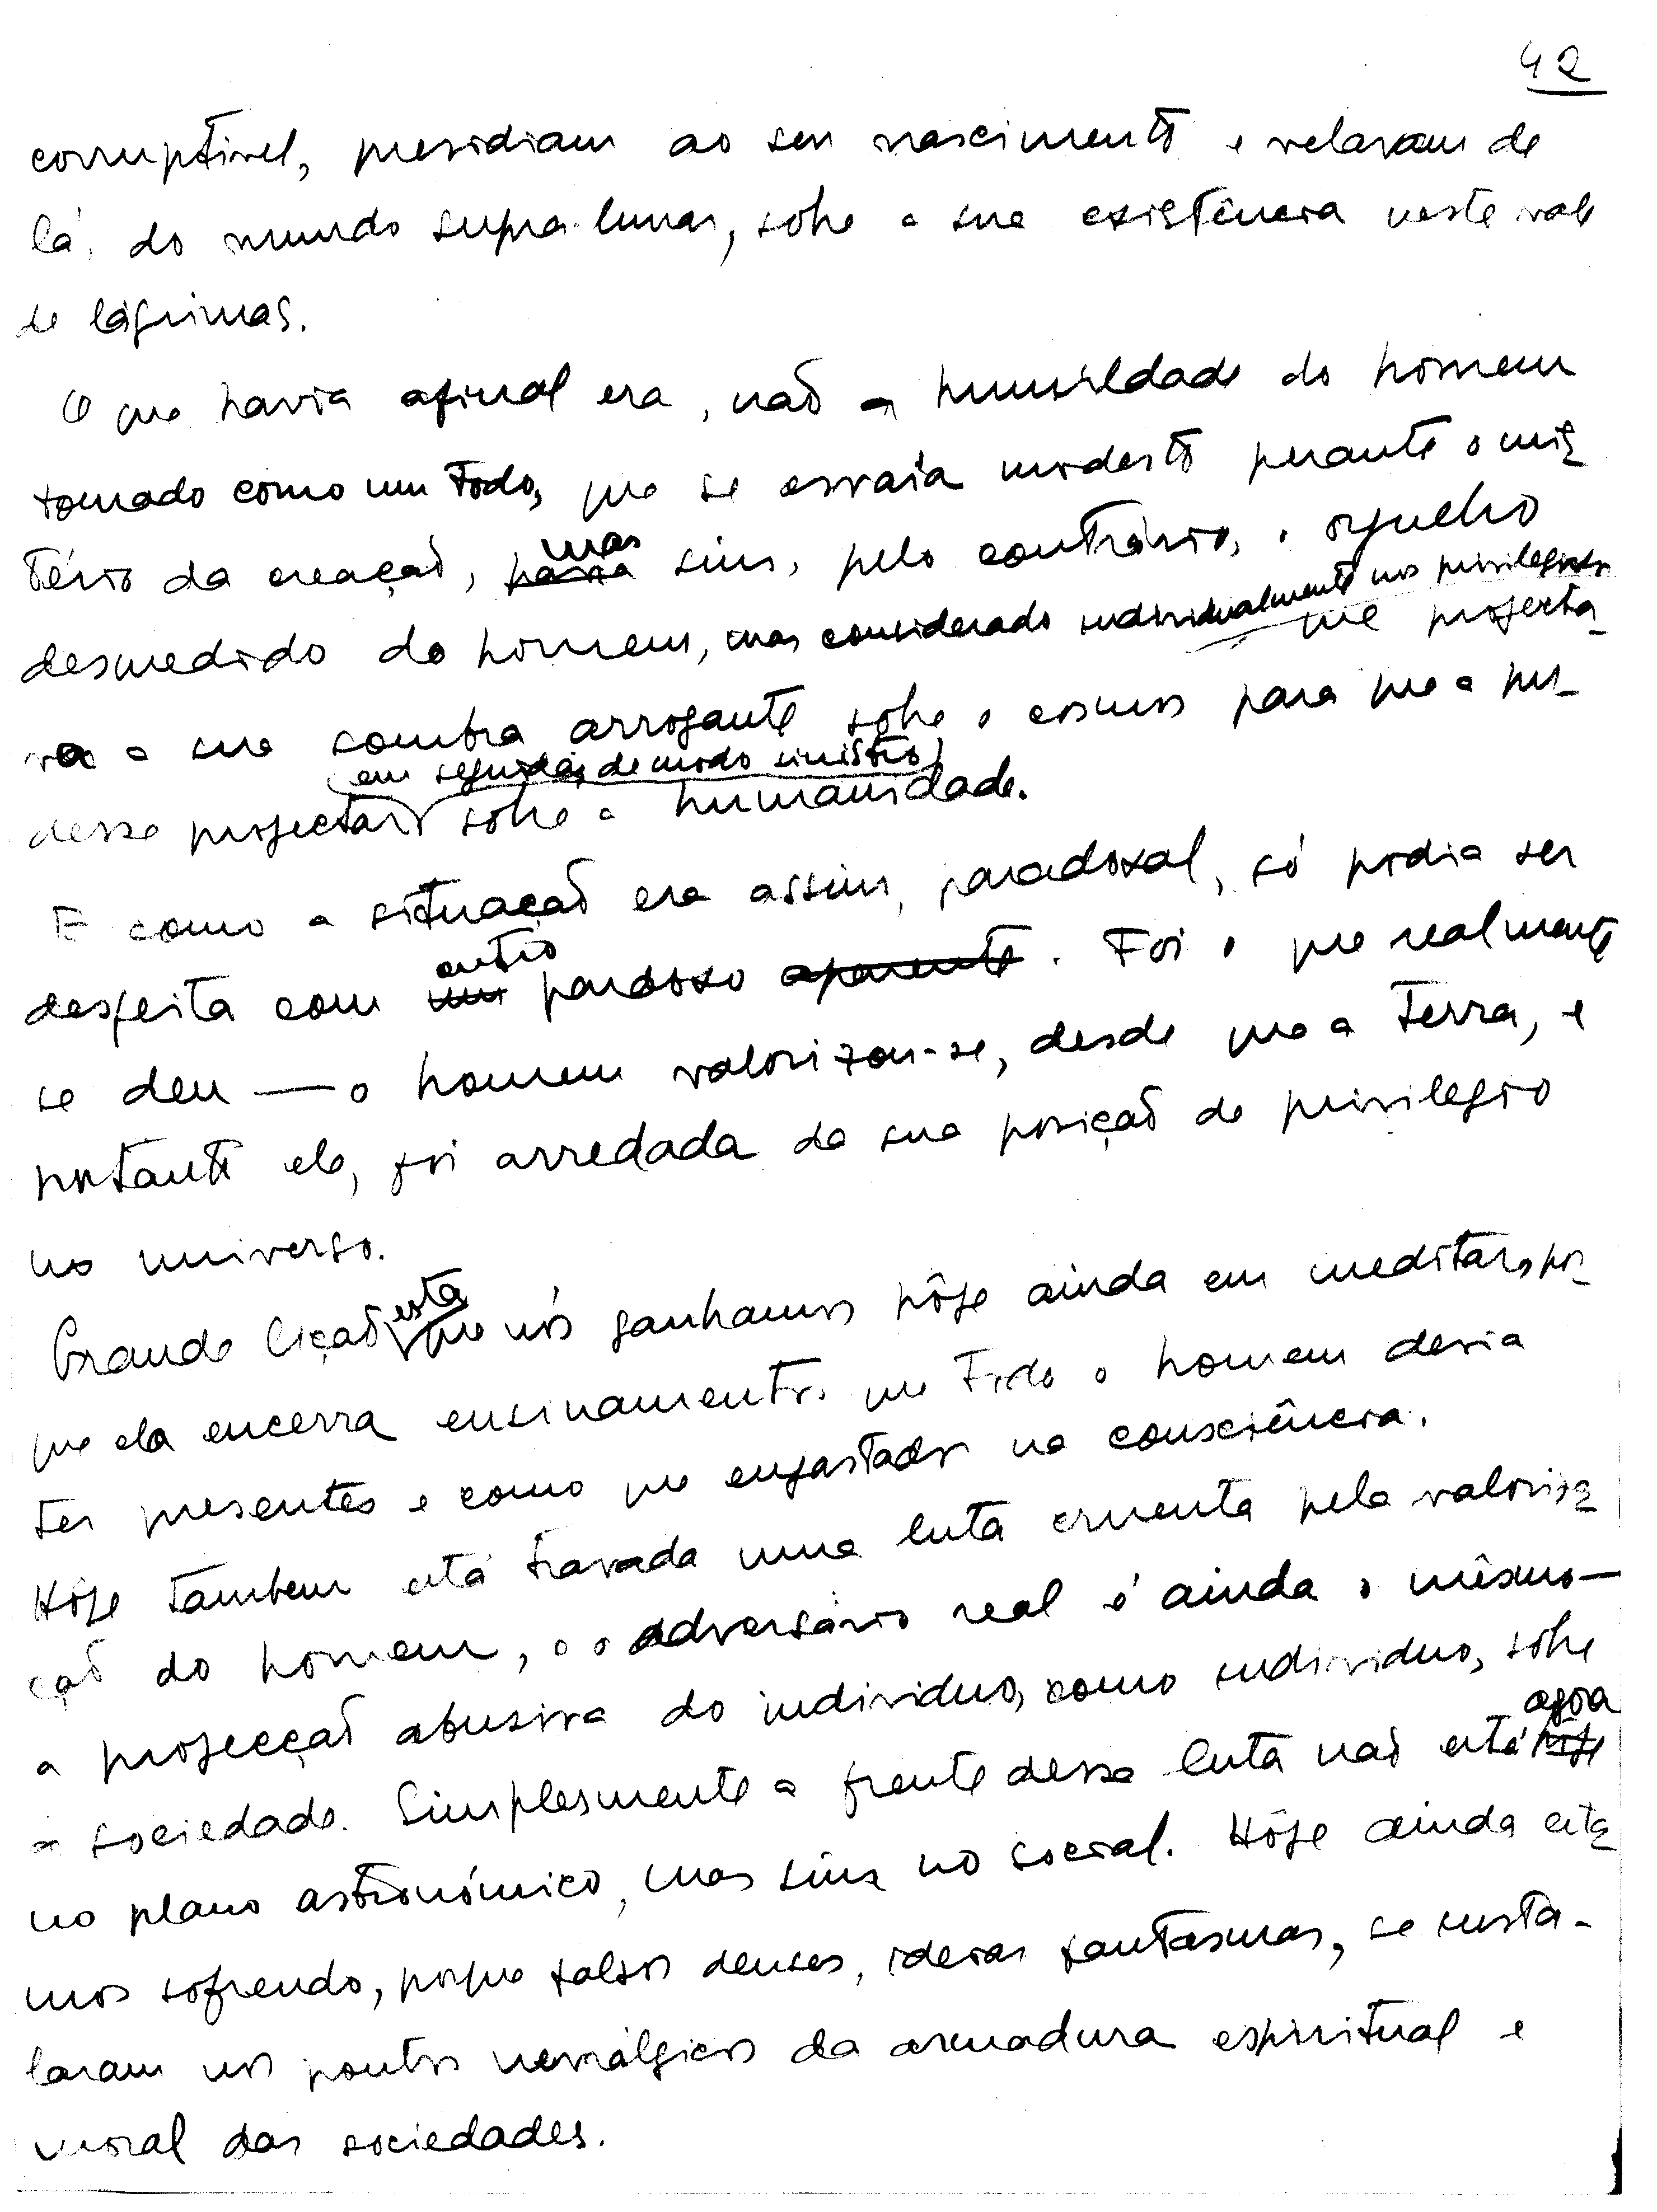 42
corruptivel, presidiam ao seu nascimento e velavam de
lá, do mundo supra-lunar, sobre a sua existência neste vale
de lágrimas.
O que havia afinal era, não a humildade do homem
tomado como um todo, que se esvaía modesto perante o mis
tério da creação, para mas sim, pelo contrário, o orgulho
desmedido do homem, mas considerado individualmente nos privilegios que projecta
va a sua sombra arrogante sobre o cosmos para que a pu-
desse projectar (em seguida, de modo sinistro) sobre a humanidade.
E como a situação era assim, paradoxal, só podia ser
desfeita com um outro paradoxo aparente. Foi o que realmente
se deu — o homem valorizou-se, desde que a Terra, e
portanto ele, foi arredada da sua posição de privilegio
no universo.
Grande lição esta que nós ganhamos hôje ainda em meditar, por
que ela encerra ensinamentos que todo o homem devia
ter presentes e como que engastados na consciência.
Hôje tambem está travada uma luta cruenta pela valorisa
ção do homem, e o adversário real é ainda o mêsmo —
a projecção abusiva do individuo, como individuo, sobre
a sociedade. Simplesmente a frente dessa luta não está hoje agora
no plano astronómico, mas sim no social. Hôje ainda esta
mos sofrendo, porque falsos deuses, ideias fantasmas, se insta-
laram nos pontos nevrálgicos da armadura espiritual e
moral das sociedades.